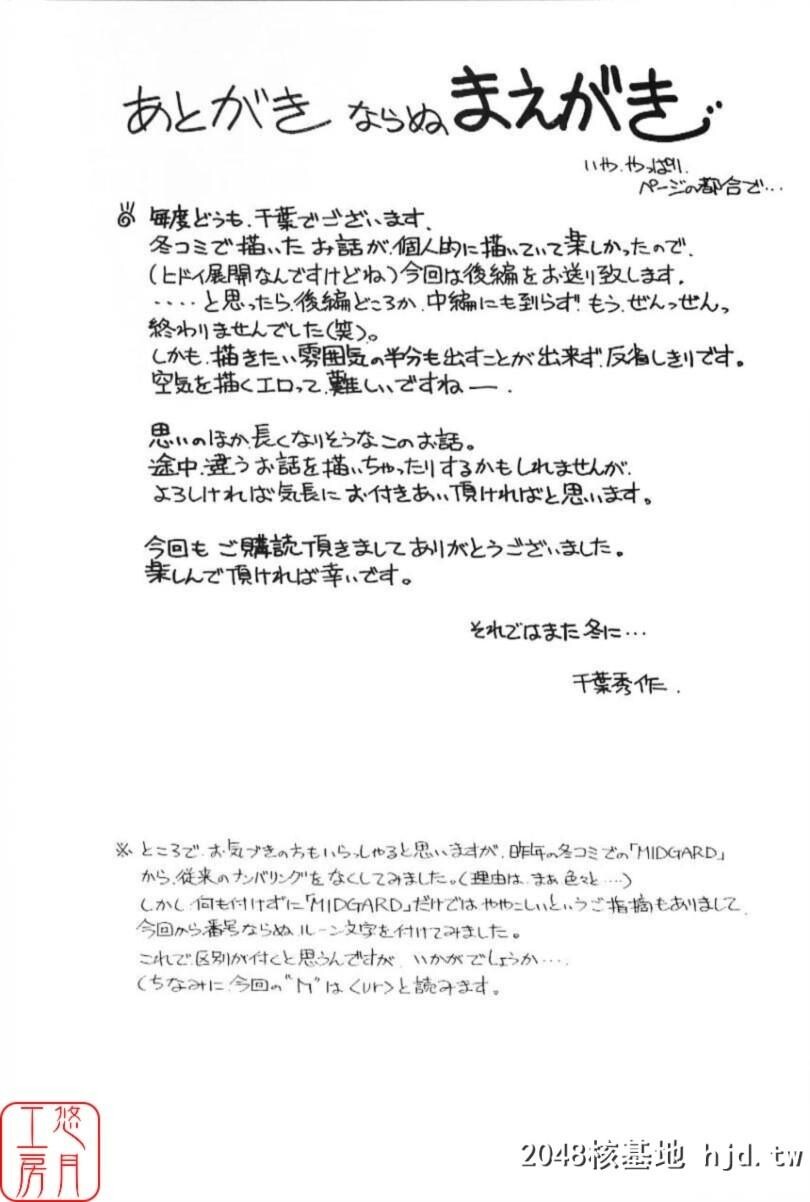 あとがき ならぬ、まえがき
いや、やっぱり、
ページの都合で…
毎度どうも、千葉でございます。
冬コミで描いた お話が、個人的に描いていて楽しかったので、
(ヒドイ展開なんですけどね)今回は後編をお送り致します。
‥‥と思ったら、後編どころか、中編にも到らず、もう、ぜんっぜんっ
終わりませんでした(笑)。
しかも、描きたい雰囲気の半分も出すことが出来ず、反省しきりです。
空気を描くエロって、難しいですねー。
思いのほか、長くなりそうなこのお話。
途中、違うお話を描いちゃったりするかもしれませんが、
よろしければ気長に お付きあい頂ければと思います。
今回も ご購読頂きましてありがとうございました。
楽しんで頂ければ幸いです。
それではまた冬に…
千葉秀作.
※ ところで、お気づきの方もいらっしゃると思いますが、昨年の冬コミでの「MIDGARD」
から、従来のナンバリングをなくしてみました。(理由は、まぁ色々と‥‥)
しかし何も付けずに「MIDGARD」だけでは ややこしいというご指摘もありまして、
今回から番号ならぬ、ルーン文字を付けてみました。
これで区別が付くと思うんですが、いかがでしょうか‥‥
(ちなみに、今回の" "は<ur>と読みます。
悠月工房
2048核基地 hjd.tw